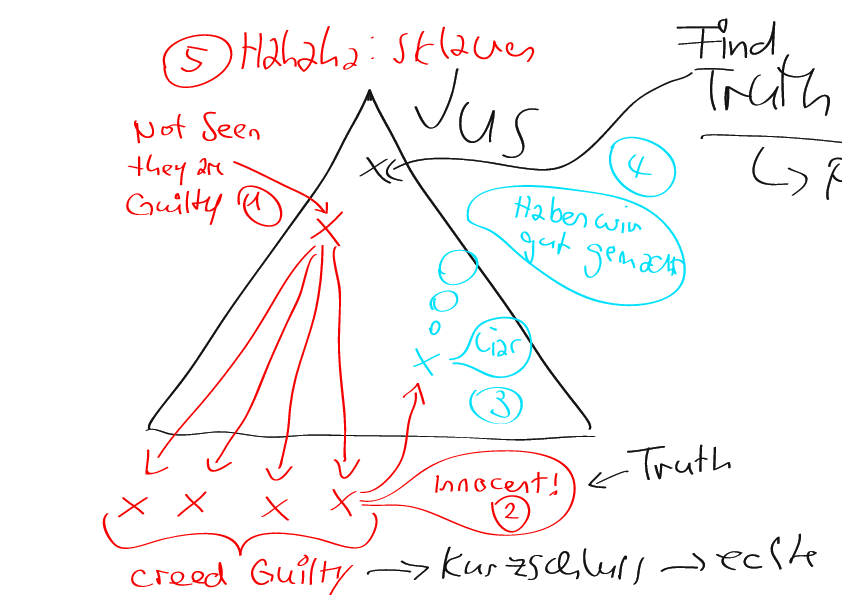 5 Hahaha: sklaven
Find
Truth
us
Not Seen
they are
Guilty 1
4
Haben wir
gut gemacht
Liar
3
Truth
Innocent!
2
creed Guilty → Kurzschluss → echte